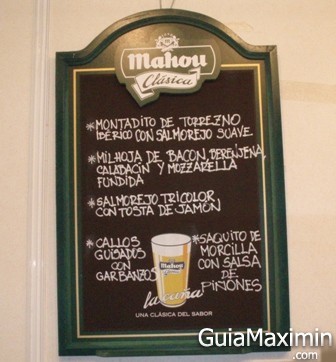 Mahou
Clásica
*MONTADITO DE TORREZNO
IBÉRICO CON SALMOREJO SUAVE
*MILHOJA DE BACON, BERENJENA,
CALABACÍN Y MOZZARELLA
FUNDIDA
*SALMOREJO TRICOLOR
CON TOSTA DE JAMÓN
*CALLOS
GUISADOS
CON
GARBANZOS
*SAQUITO DE
MORCILLA
CON SALSA
DE
PIÑONES
Mahou
la caña
UNA CLÁSICA DEL SABOR
GuiaMaximin
.com